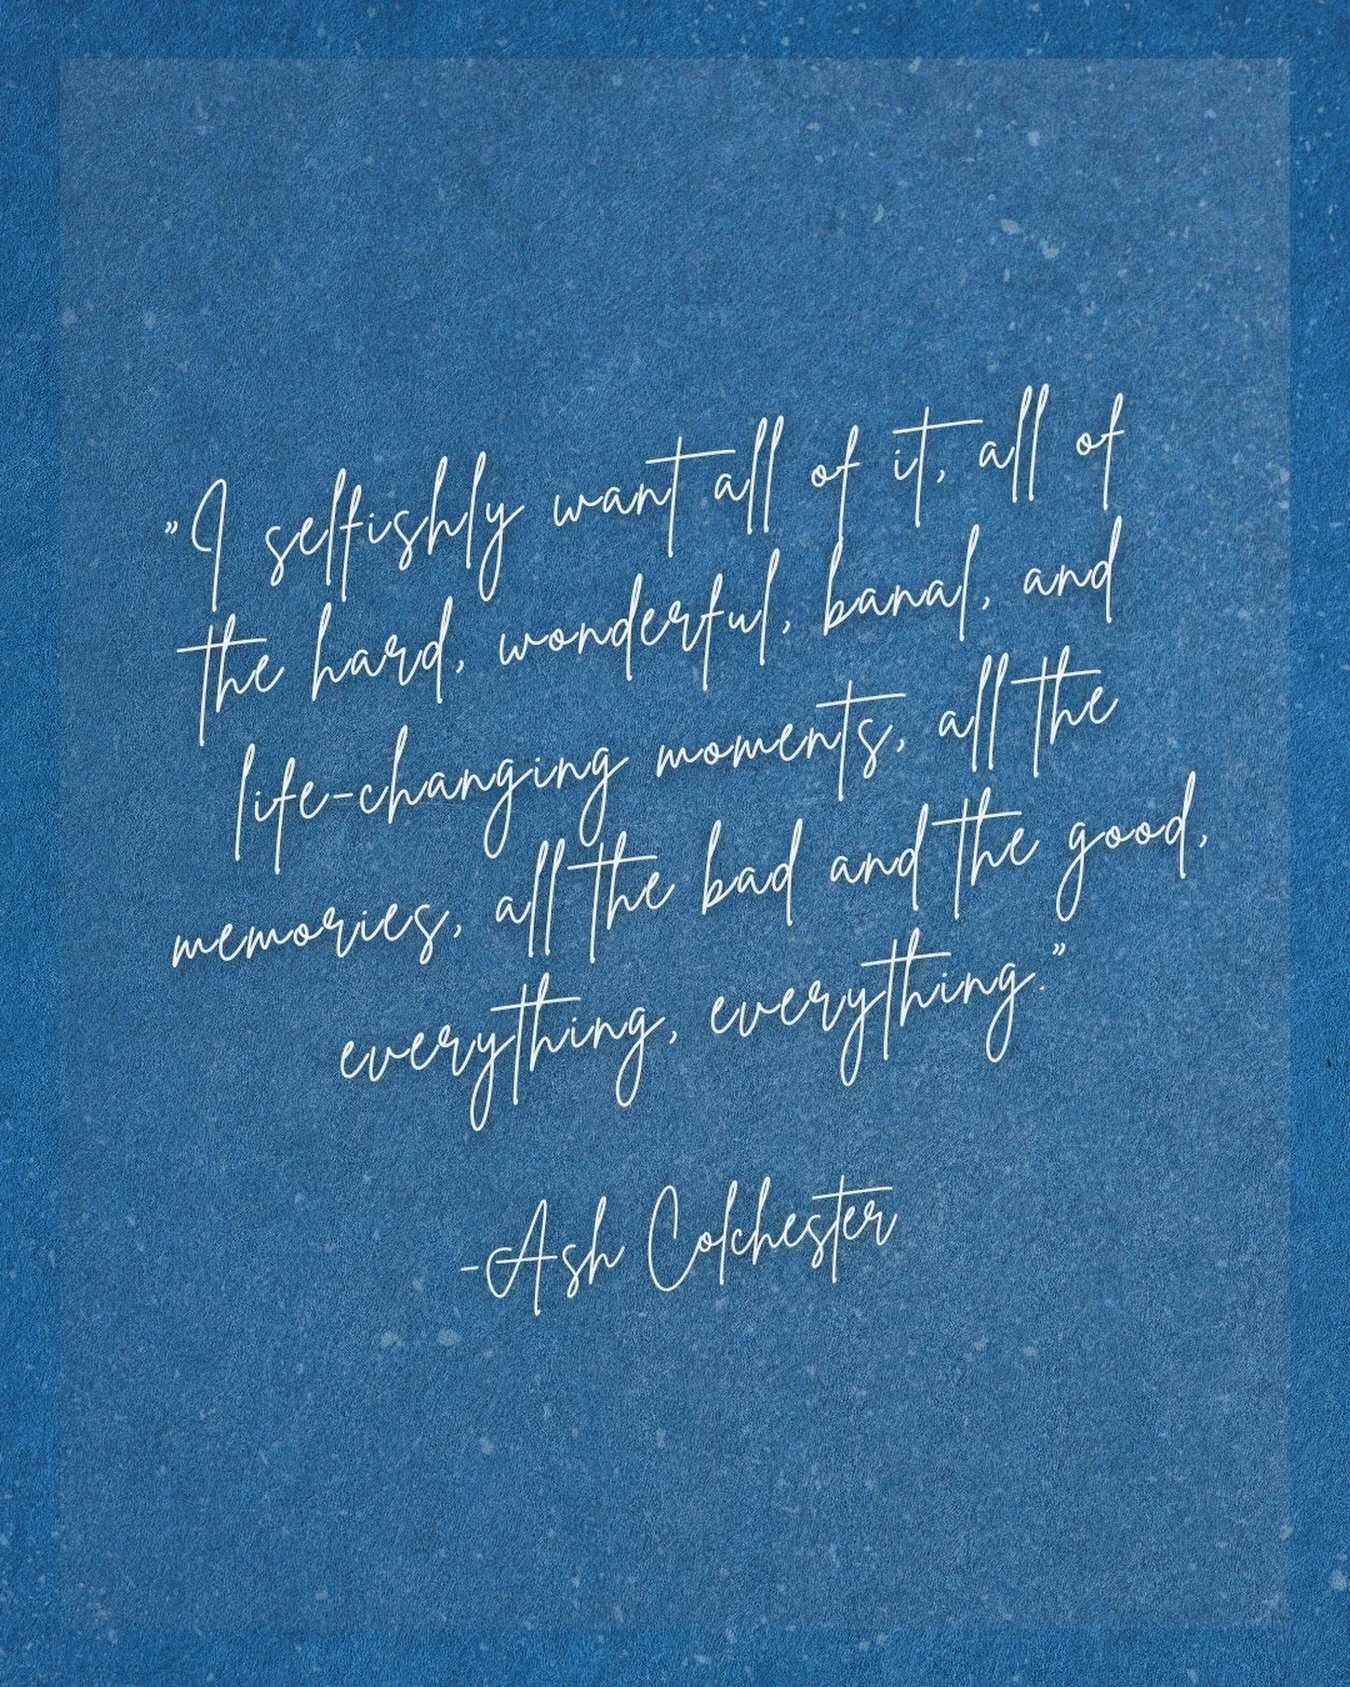 "I selfishly want all of it, all of
the hard, wonderful, banal, and
life-changing moments, all the
memories, all the bad and the good,
everything, everything."
-Ash Colchester